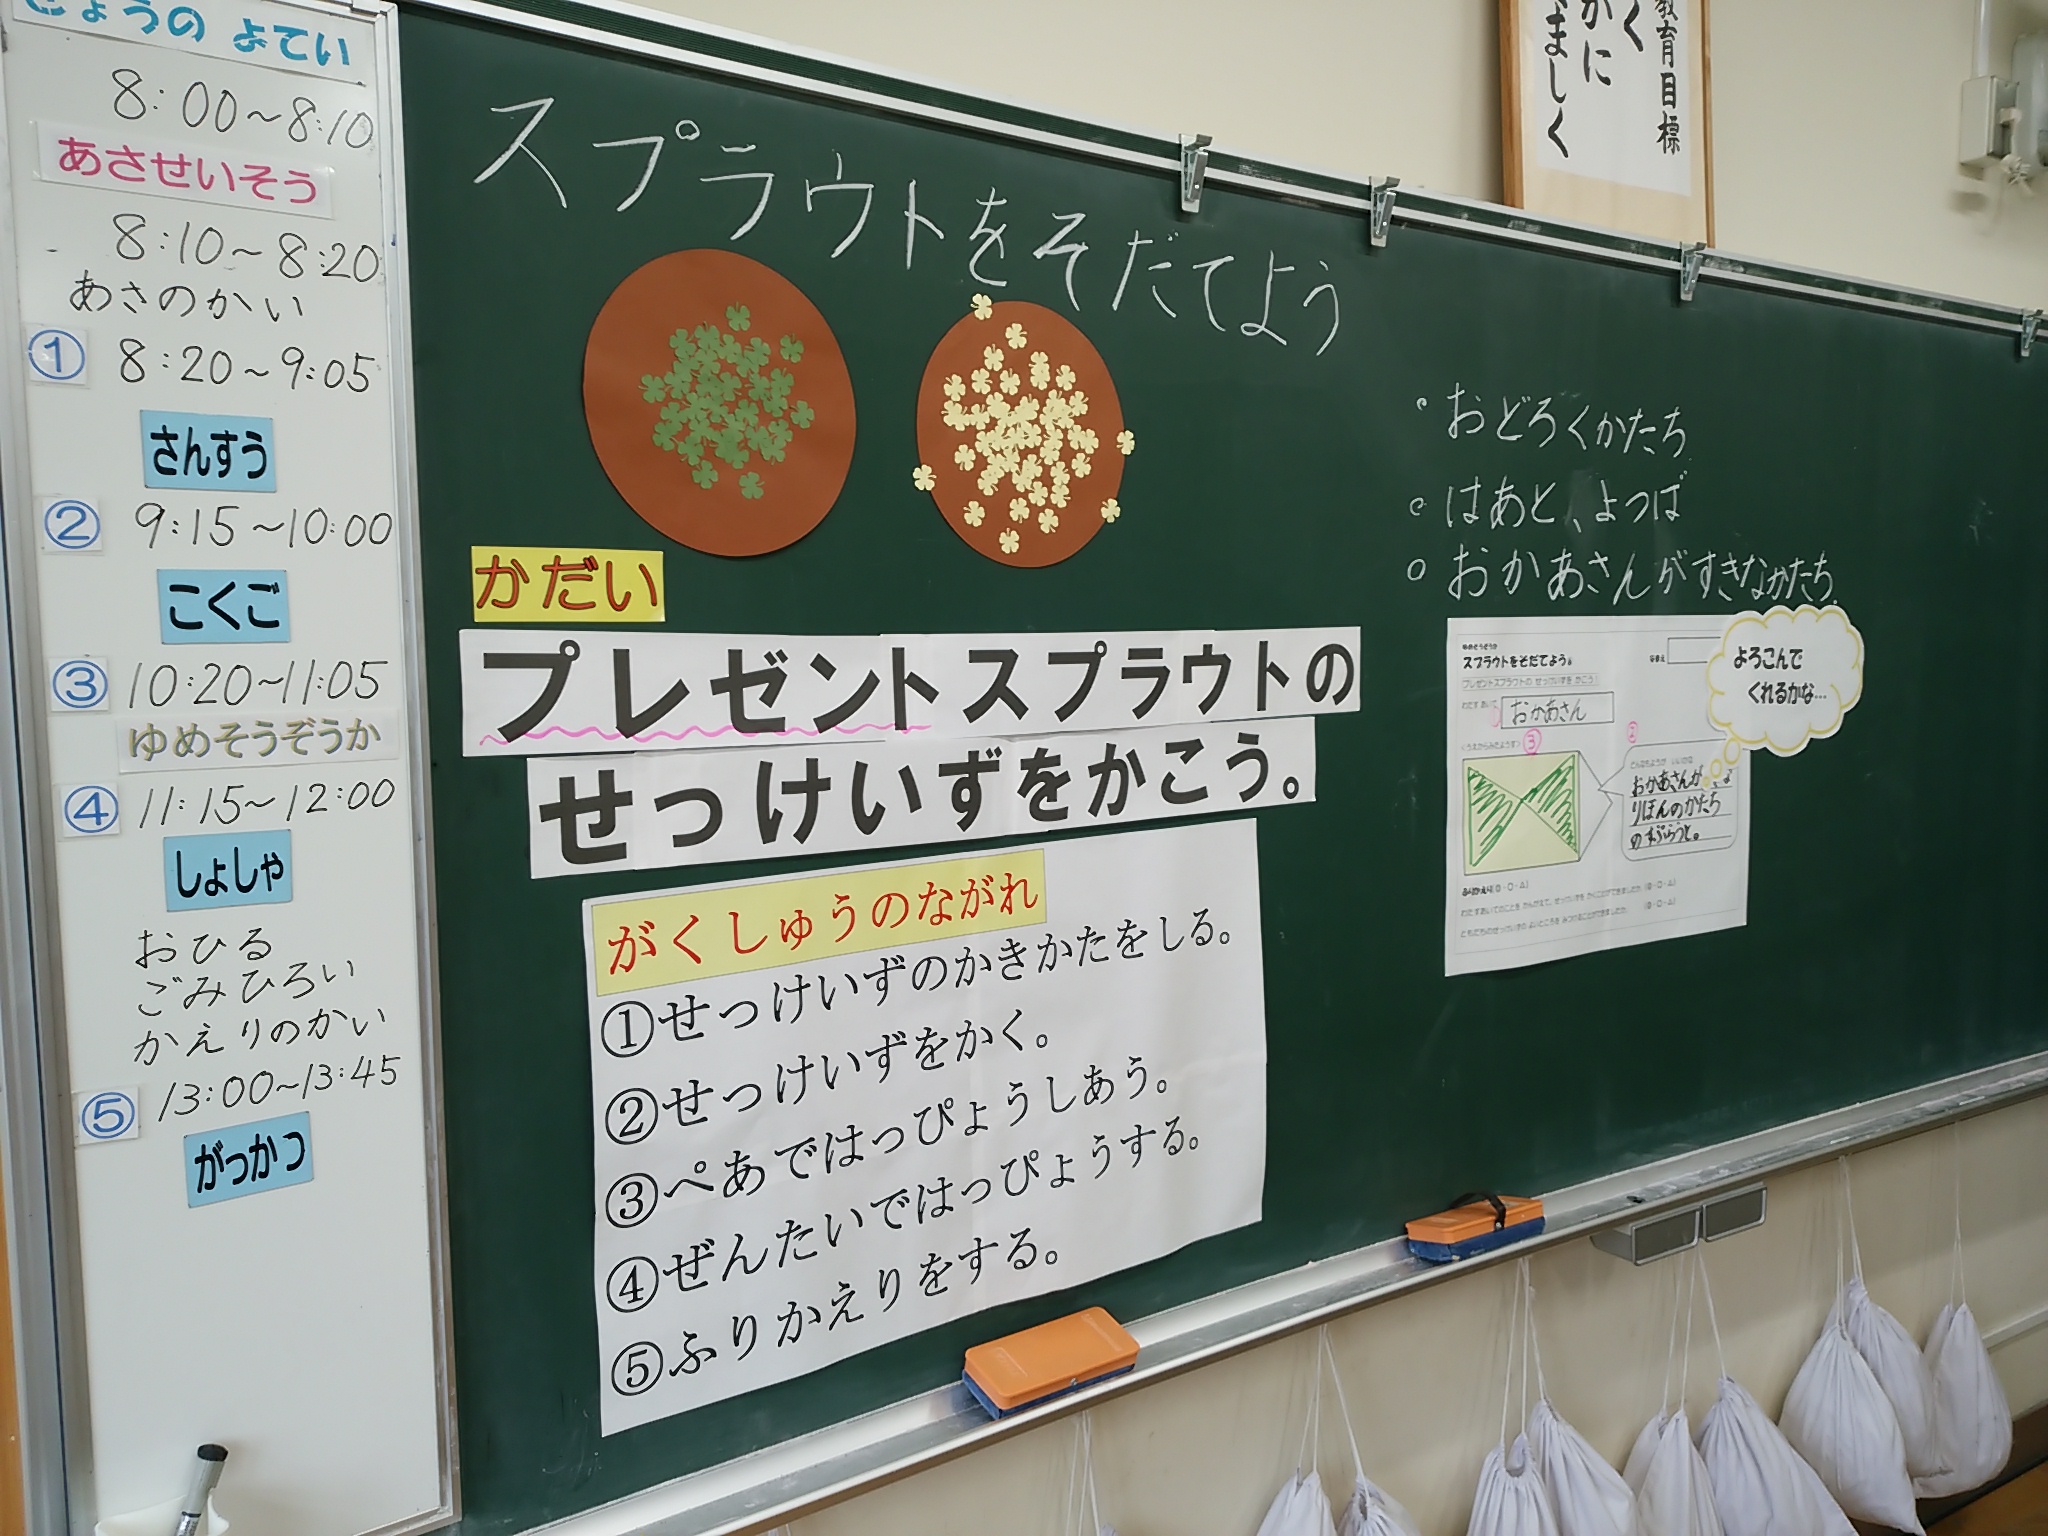 きょうの よてい
8:00～8:10
あさせいそう
8:10～8:20
あさのかい
① 8:20～9:05
さんすう
② 9:15～10:00
こくご
③ 10:20～11:05
ゆめそうぞうか
④ 11:15～12:00
しょしゃ
おひる
ごみひろい
かえりのかい
⑤ 13:00～13:45
がっかつ
スプラウトをそだてよう
かだい
プレゼントスプラウトの
せっけいずをかこう。
がくしゅうのながれ
①せっけいずのかきかたをしる。
②せっけいずをかく。
③ぺあではっぴょうしあう。
④ぜんたいではっぴょうする。
⑤ふりかえりをする。
。おどろくかたち
。はあと、よつば
○おかあさんがすきなかたち.
ゆめそうぞうか
スプラウトをそだてよう。
なまえ
プレゼントスプラウトの せっけいずを かこう！
わたす あいて
おかあさん
③
②
おかあさんが
りぼんのかたち
のすぷらうと。
よろこんで
くれるかな…
教育目標
く
かに
ましく